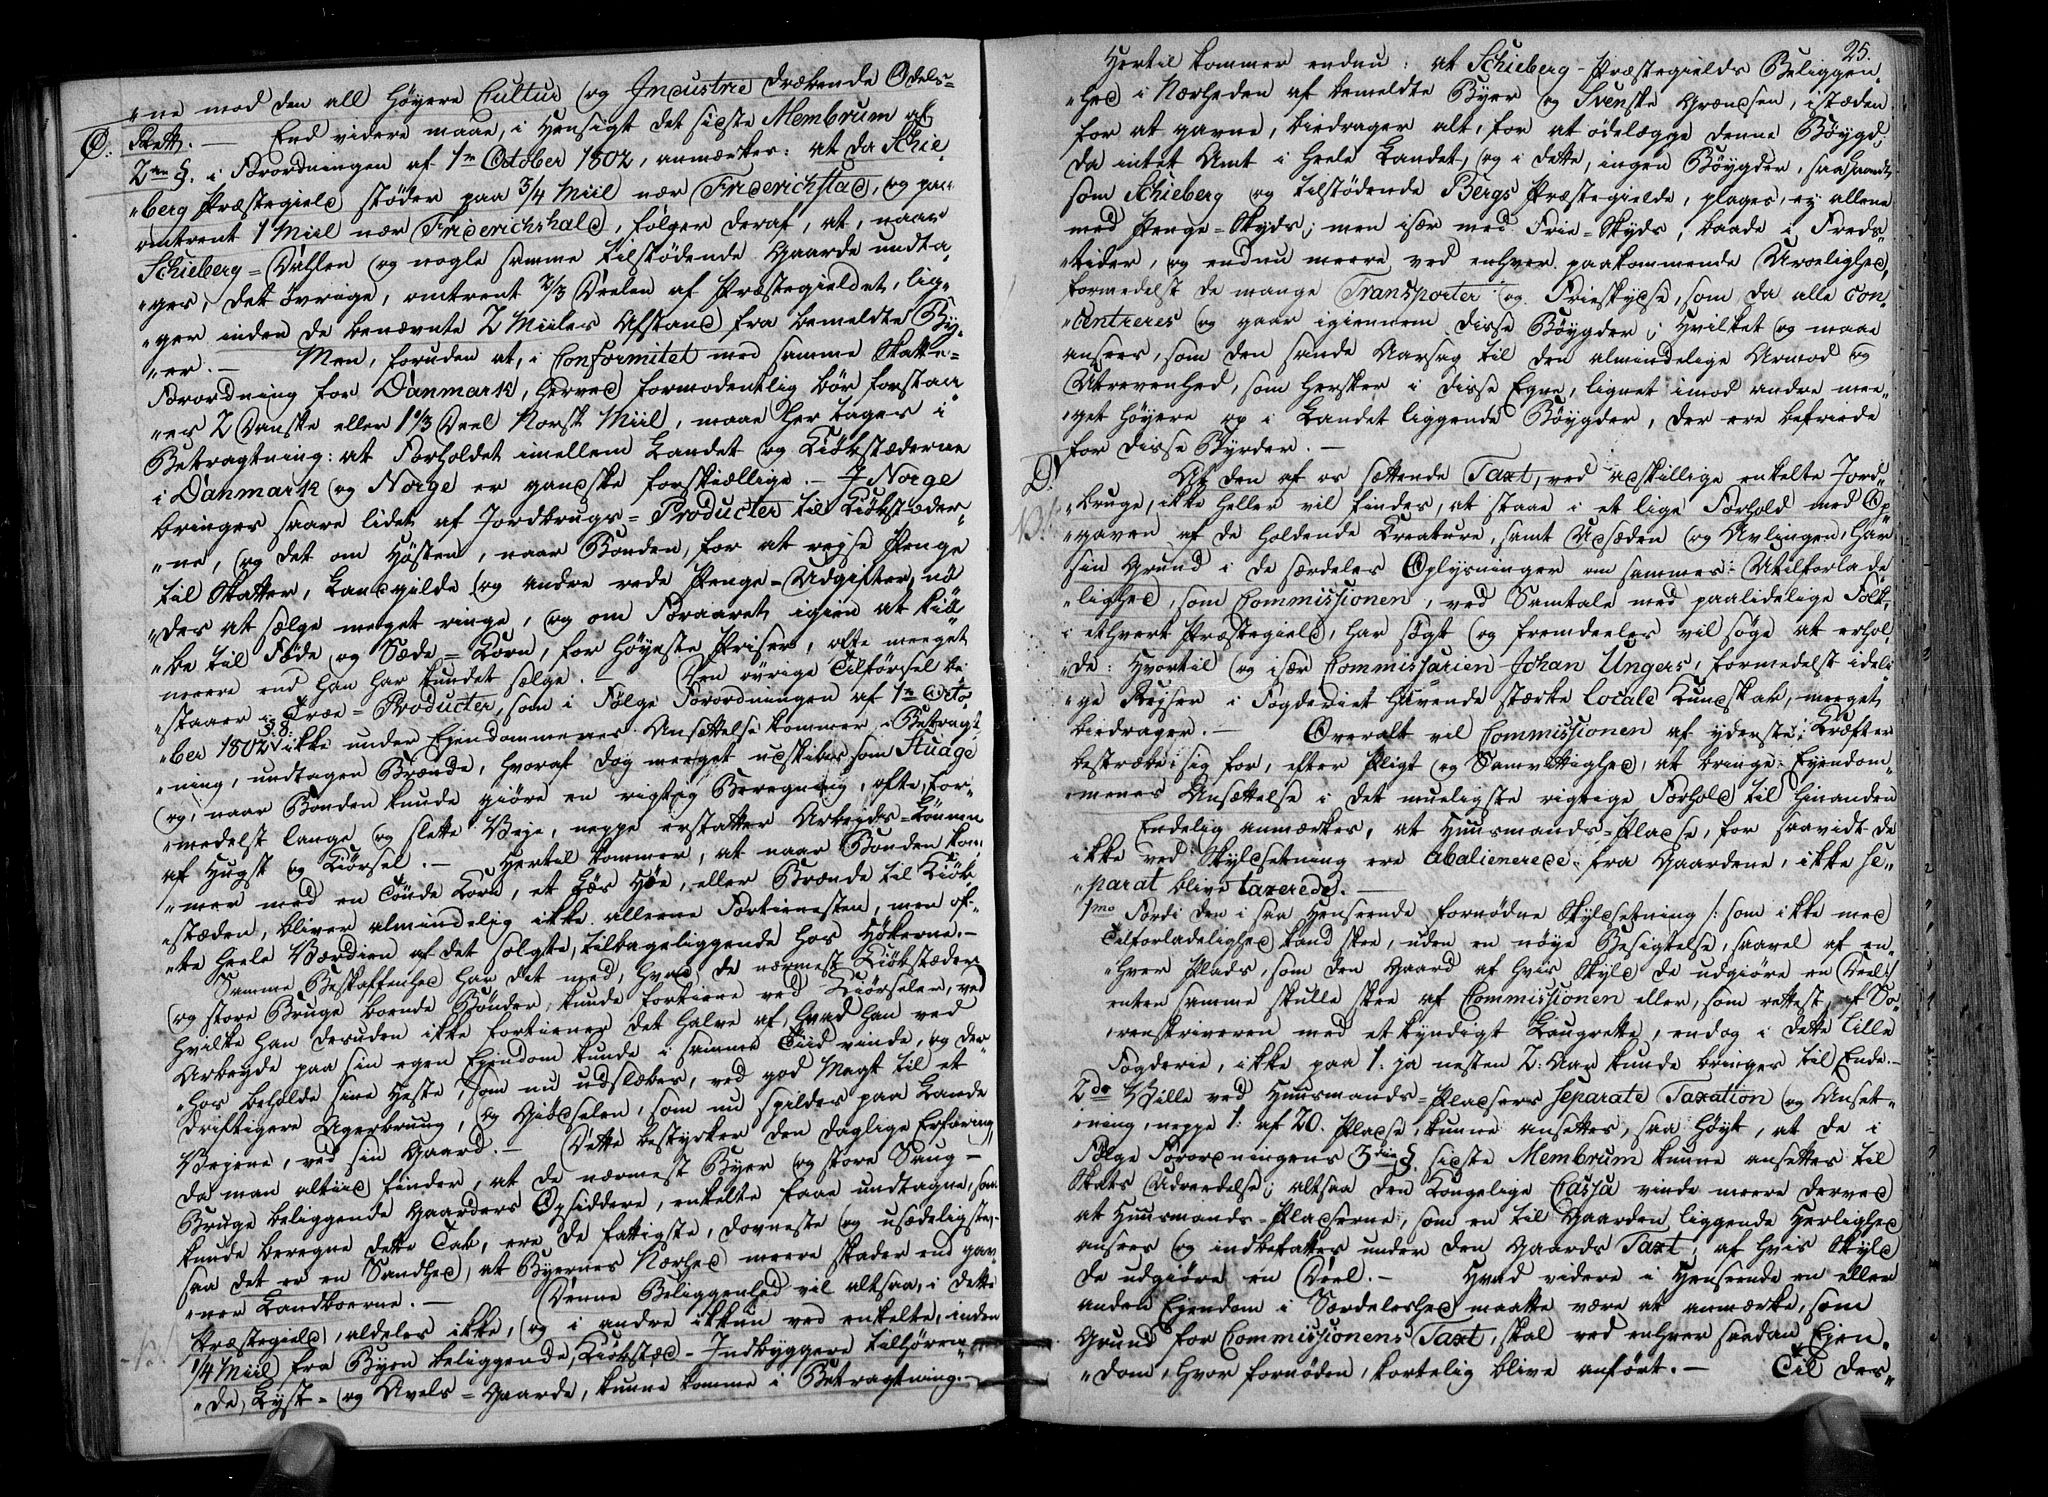 "ne mod den all höyere Cultur og Industrie dræbende Odels-
C: Rett. — End videre maae, i Hensigt det sidste Membrum af
2den §. i Forordningen af 1ste October 1802, anmærkes: at da Schie,
"berg Præstegield støder paa 3/4 Miil nær Friderichstad, og paa
omtrent 1 Miil nær Friderichshald, følger deraf, at, naar
Schieberg = Dahlen og nogle samme tilstødende Gaarde undta,
"ges, det øvrige, omtrent 2/3 Deelen af Præstegieldet, lig,
"ger inden de benævnte 2 Miiles Afstand fra bemeldte By,
"er. — Men, foruden at, i Conformitet med samme Skatte =
Forordning for Danmark, herved formodentlig bør forstaa,
"es 2 Danske eller 1 1/3 Deel Norsk Miil, maae her tages i
Betragtning: at Forholdet imellem Landet og Kiöbstæderne
i Danmark og Norge er gandske forskiællige. — I Norge
bringes saare lidet af Jordbrugs = Producter til Kiöbstæder,
"ne, og det om Høsten, naar Bonden, for at rejse Penge
til Skatter, Landgilde og andre rede Penge = Udgifter, nö
"des at sælge meget ringe, og om Foraaret igien at kiö
"be til Føde og Sæde = Korn, for høyeste Priser, ofte meeget
meere end han har kundet sælge. — Den øvrige Tilførsel be,
"staaer i Træe = Producter, som i Følge Forordningen af 1ste Octo,
"ber 1802 §: 8: ikke under Ejendommenes Ansættelse kommer i Betragt,
"ning, undtagen Brænde, hvoraf dog meeget udskibes som Stuage
og, naar Bonden kunde giøre en rigtig Beregning, ofte, for,
"medelst lange og slette Veje, neppe erstatter Arbejds = Lønnen
af Hugst og Kiørsel. — Hertil kommer, at naar Bonden kom,
"mer med en Tønde Korn, et Læs Høe, eller Brænde til Kiöb,
"stæden, bliver almindelig ikke alleene Fortienesten, men of,
"te heele Værdien af det solgte, tilbageliggende hos Høkerne. —
Samme Beskaffenhed har det med, hvad de nærmest Kiöbstæder
og store Bruge boende Bønder, kunde fortiene ved Kiørselen, ved
hvilke han desuden ikke fortiener det halve af, hvad han ved
Arbeyde paa sin egen Ejendom kunde i samme Tiid vinde, og der,
"hos beholde sine Heste, som nu udslæbes, ved god Magt til et
driftigere Agerbruug, og Giödselen, som nu spildes paa Lande
Vejene, ved sin Gaard. — Dette bestyrker den daglige Erfaring,
da man altiid finder, at de nærmest Byer og store Saug —
Bruge beliggende Gaarders Opsiddere, enkelte faae undtagne, som
kunde beregne dette Tab, ere de fattigste, dovneste og usædeligste, —
saa det er en Sandhed, at Byernes Nærhed meere skader end gav,
"ner Landboerne. — Denne Beliggenhed vil altsaa, i dette
Præstegield, aldeles ikke, og i andre ikkun ved enkelte, inden
1/4 Miil fra Byen beliggende, Kiöbstæd - Indbyggere tilhøren,
"de, Lyst = og Avels = Gaarde, kunne komme i Betragtning. —
25.
Hertil kommer endnu: at Schieberg - Præstegields Beliggen,
"hed i Nærheden af bemeldte Byer og Svenske Grændsen, istæden
for at gavne, biedrager alt, for at ødelægge denne Bøygd;
da intet Amt i heele Landet, og i dette, ingen Bøygder, saa haardt,
som Schieberg og tilstødende Bergs Præstegielde, plages, ej allene
med Penge = Skyds; men især med Frie = Skyds, baade i Freds
"tider, og endnu meere ved enhver paakommende Uroelighed,
formedelst de mange Transporter og Frieskydse, som da alle con,
"centreres og gaar igiennem disse Bøygder; hvilket og maae
ansees, som den sande Aarsag til den almindelige Armod og
Utrevenhed, som hersker i disse Egne, lignet imod andre mee,
"get høyere op i Landet liggende Bøygder, der ere befriede
for disse Byrder. —
D: At den af os sættende Taxt, ved adskillige enkelte Jord,
"bruge, ikke heller vil findes, at staae i et lige Forhold med Op,
"gaven af de holdende Creature, samt Udsæden og Avlingen, har
sin Grund i de særdeles Oplysninger om sammes Utilforlade,
"lighed, som Commissionen, ved Samtale med paalidelige Folk,
i ethvert Præstegield, har søgt og fremdeeles vil søge at erhol,
"de: Hvortil og især Commissairen Johan Ungers, formedelst ideli,
"ge Rejser i Fogderiet havende stærke locale Kundskab, meeget
biedrager. — Overalt vil Commissionen af yderste Kræfter
bestræbe sig for, efter Pligt og Samvittighed, at bringe Ejendom,
"menes Ansættelse i det mueligste rigtige Forhold til hinanden
Endelig anmærkes, at Huusmands = Pladse, for saavidt de
ikke ved Skyldsetning ere abalienerede fra Gaardene, ikke se,
"parat blive taxerede. —
1mo Fordi den i saa Henseende fornødne Skyldsetning /: som ikke med
Tilforladelighed kand skee, uden en nøye Besigtelse, saavel af en,
"hver Plads, som den Gaard af hvis Skyld de udgiøre en Deel :/
enten samme skulle skee af Commissionen eller, som rettest, af So,
"renskriveren med et kyndigt Laugrette, endog i dette lille
Fogderie, ikke paa 1: ja nesten 2: Aar kunde bringes til Ende. —
2do Ville ved Huusmands = Pladsers separate Taxation og Anset,
"ning, neppe 1: af 20. Pladse, kunne ansettes, saa høyt, at de i
Følge Forordningens 3die §. sidste Membrum kunne ansettes til
Skats Udredelse; altsaa den Kongelige Cassa vinde meere derved
at Huusmands - Pladserne, som en til Gaarden liggende Herlighed
ansees og indbefattes under den Gaards Taxt, af hvis Skyld
de udgiøre en Deel. — Hvad videre i Henseende en eller
anden Ejendom i Særdeleshed maatte være at anmærke, som
Grund for Commissionens Taxt, skal ved enhver saadan Ejen,
"dom, hvor fornøden, kortelig blive anført. — Til des,"